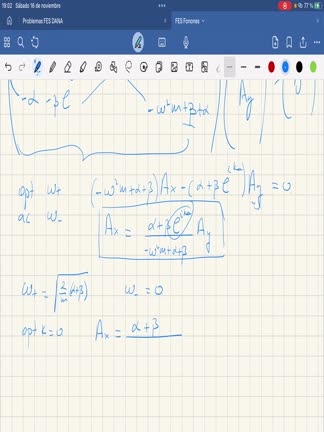 19:02 Sábado 16 de noviembre 77 %
Problemas FES DANA FES Fonones
-α -βe
-ω²m+β+α
Ay
0
opt ω₊ (-ω²m+α+β)Ax -(α+βe^{ika})Ay = 0
ac ω₋
Ax = \frac{α+βe^{ika}}{-ω²m+α+β} Ay
ω₊ = \sqrt{\frac{2}{m}(α+β)} ω₋ = 0
opt k=0 Ax = α+β